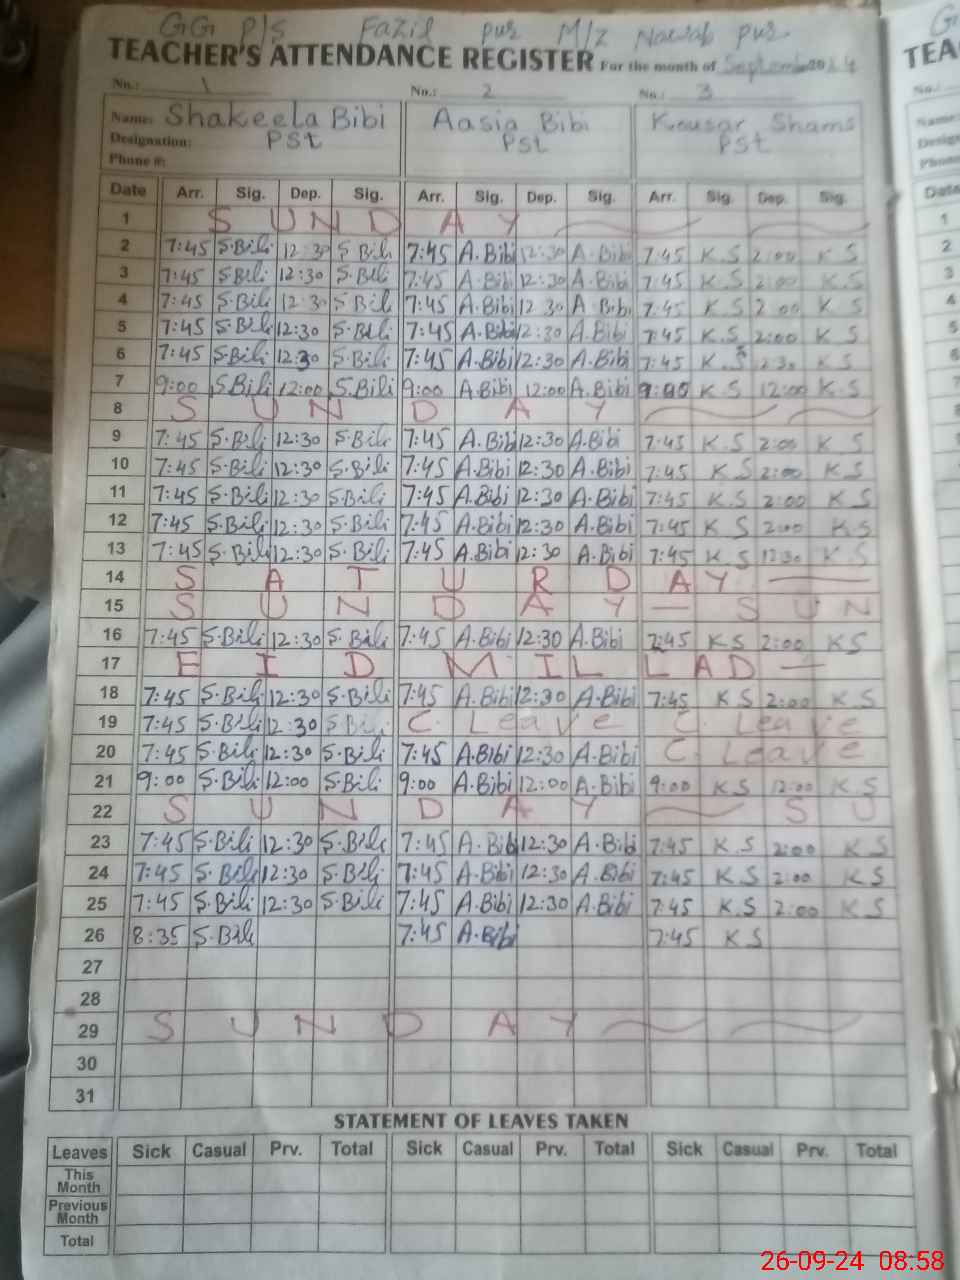 GG P/S Fazil pur M/z Nawab pur
TEACHER'S ATTENDANCE REGISTER For the month of September 2024
No.: 1 No.: 2 No.: 3
Name: Shakeela Bibi Aasia Bibi Kousar Shams
Designation: PSt PSt PSt
Phone #:
Date Arr. Sig. Dep. Sig. Arr. Sig. Dep. Sig. Arr. Sig. Dep. Sig.
1 S U N D A Y
2 7:45 S.Bili 12:30 S.Bili 7:45 A.Bibi 12:30 A.Bibi 7:45 K.S 2:00 K S
3 7:45 S.Bili 12:30 S.Bili 7:45 A.Bibi 12:30 A.Bibi 7:45 K.S 2:00 K.S
4 7:45 S.Bili 12:30 S.Bili 7:45 A.Bibi 12:30 A.Bibi 7:45 K.S 2:00 K S
5 7:45 S.Bili 12:30 S.Bili 7:45 A.Bibi 12:30 A.Bibi 7:45 K.S 2:00 K S
6 7:45 S.Bili 12:30 S.Bili 7:45 A.Bibi 12:30 A.Bibi 7:45 K.S K S
7 9:00 S.Bili 12:00 S.Bili 9:00 A.Bibi 12:00 A.Bibi 9:00 K S 12:00 K S
8 S U N D A Y
9 7:45 S.Bili 12:30 S.Bili 7:45 A.Bibi 12:30 A.Bibi 7:45 K.S 2:00 K S
10 7:45 S.Bili 12:30 S.Bili 7:45 A.Bibi 12:30 A.Bibi 7:45 K S 2:00 K S
11 7:45 S.Bili 12:30 S.Bili 7:45 A.Bibi 12:30 A.Bibi 7:45 K S 2:00 K S
12 7:45 S.Bili 12:30 S.Bili 7:45 A.Bibi 12:30 A.Bibi 7:45 K S 2:00 K.S
13 7:45 S.Bili 12:30 S.Bili 7:45 A.Bibi 12:30 A.Bibi 7:45 K S 12:30 K S
14 S A T U R D A Y
15 S U N D A Y — S U N
16 7:45 S.Bili 12:30 S.Bili 7:45 A.Bibi 12:30 A.Bibi 7:45 K S 2:00 K S
17 E I D M I L L A D
18 7:45 S.Bili 12:30 S.Bili 7:45 A.Bibi 12:30 A.Bibi 7:45 K S 2:00 K S
19 7:45 S.Bili 12:30 S.Bili C. Leave C. Leave
20 7:45 S.Bili 12:30 S.Bili 7:45 A.Bibi 12:30 A.Bibi C. Leave
21 9:00 S.Bili 12:00 S.Bili 9:00 A.Bibi 12:00 A.Bibi 9:00 K S 12:00 K S
22 S U N D A Y S U
23 7:45 S.Bili 12:30 S.Bili 7:45 A.Bibi 12:30 A.Bibi 7:45 K S 2:00 K S
24 7:45 S.Bili 12:30 S.Bili 7:45 A.Bibi 12:30 A.Bibi 7:45 K S 2:00 K S
25 7:45 S.Bili 12:30 S.Bili 7:45 A.Bibi 12:30 A.Bibi 7:45 K.S 2:00 K S
26 8:35 S.Bili 7:45 A.Bibi 7:45 K S
27
28
29 S U N D A Y
30
31
STATEMENT OF LEAVES TAKEN
Leaves Sick Casual Prv. Total Sick Casual Prv. Total Sick Casual Prv. Total
This Month
Previous Month
Total
26-09-24 08:58